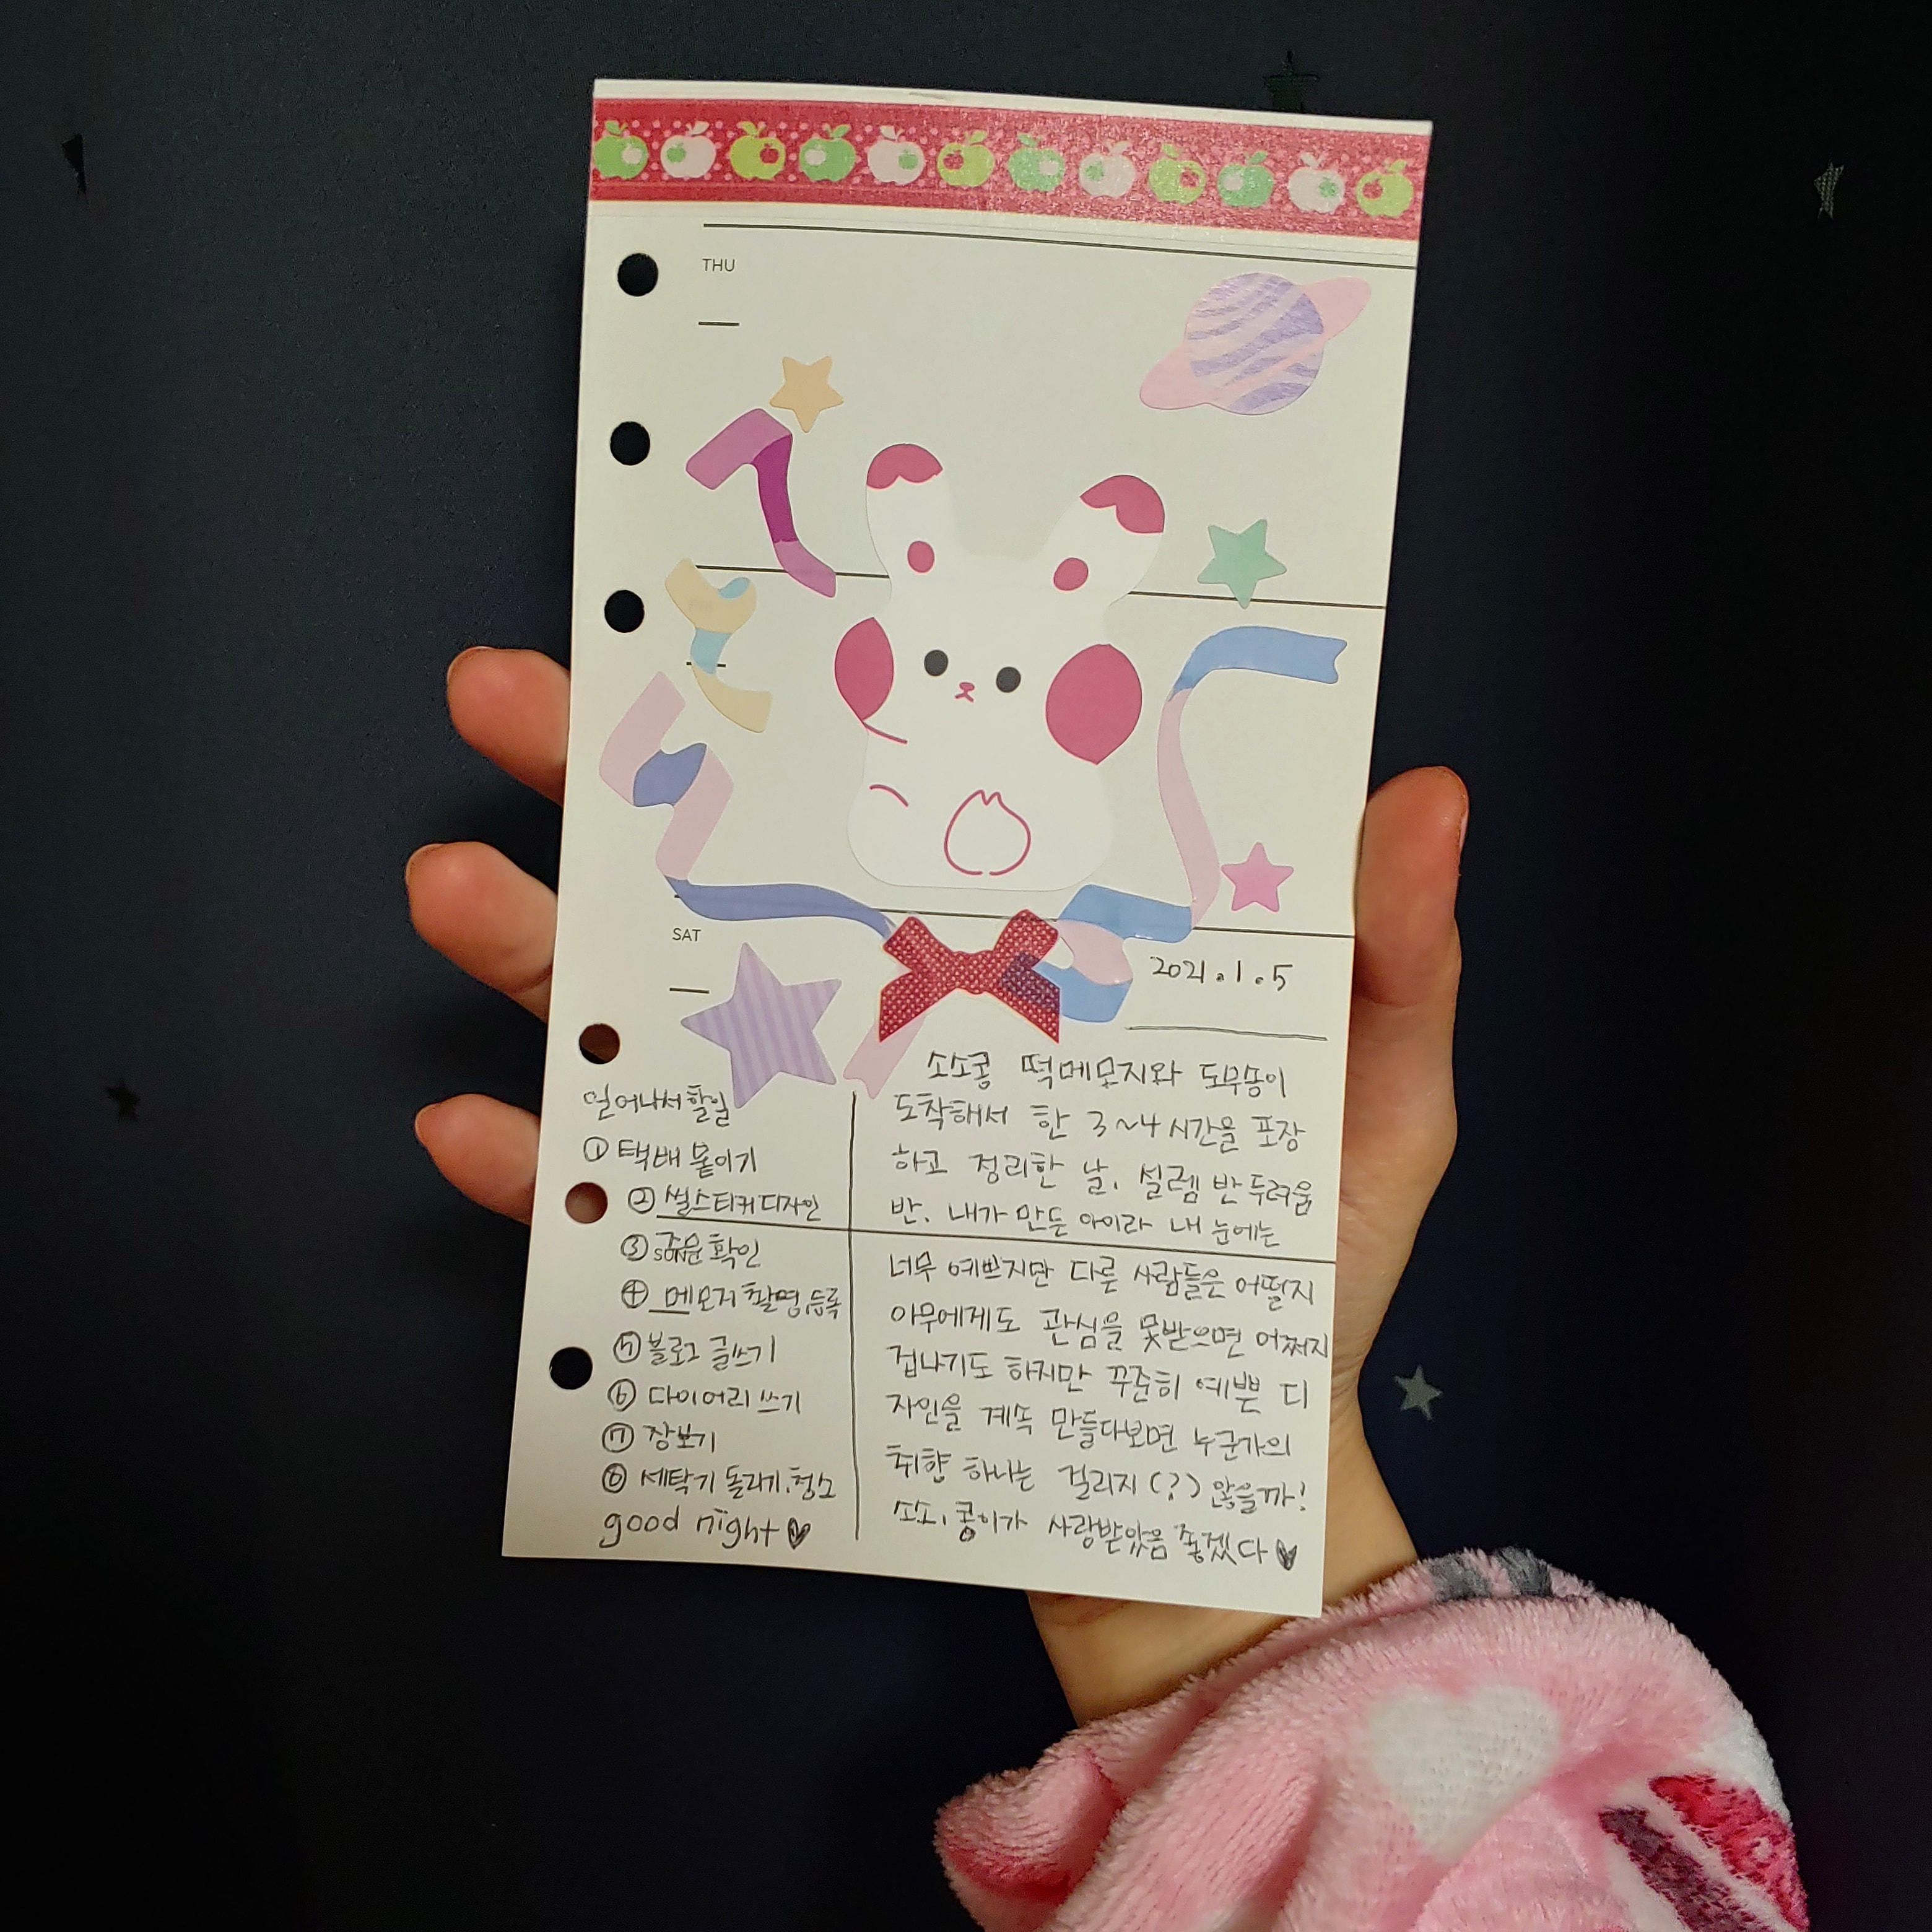 THU
SAT
2021.1.5
일어나서 할일
① 택배 붙이기
② 씰스티커 디자인
③ 주문 확인
④ 메모지 촬영, 등록
⑤ 블로그 글쓰기
⑥ 다이어리 쓰기
⑦ 장보기
⑧ 세탁기 돌리기, 청소
good night♥
소소콩 떡메모지와 도무송이
도착해서 한 3~4시간을 포장
하고 정리한 날. 설렘 반 두려움
반. 내가 만든 아이라 내 눈에는
너무 예쁘지만 다른 사람들은 어떨지
아무에게도 관심을 못받으면 어쩌지
겁나기도 하지만 꾸준히 예쁜 디
자인을 계속 만들다보면 누군가의
취향 하나는 걸리지(?) 않을까!
소소, 콩이가 사랑받았음 좋겠다♥